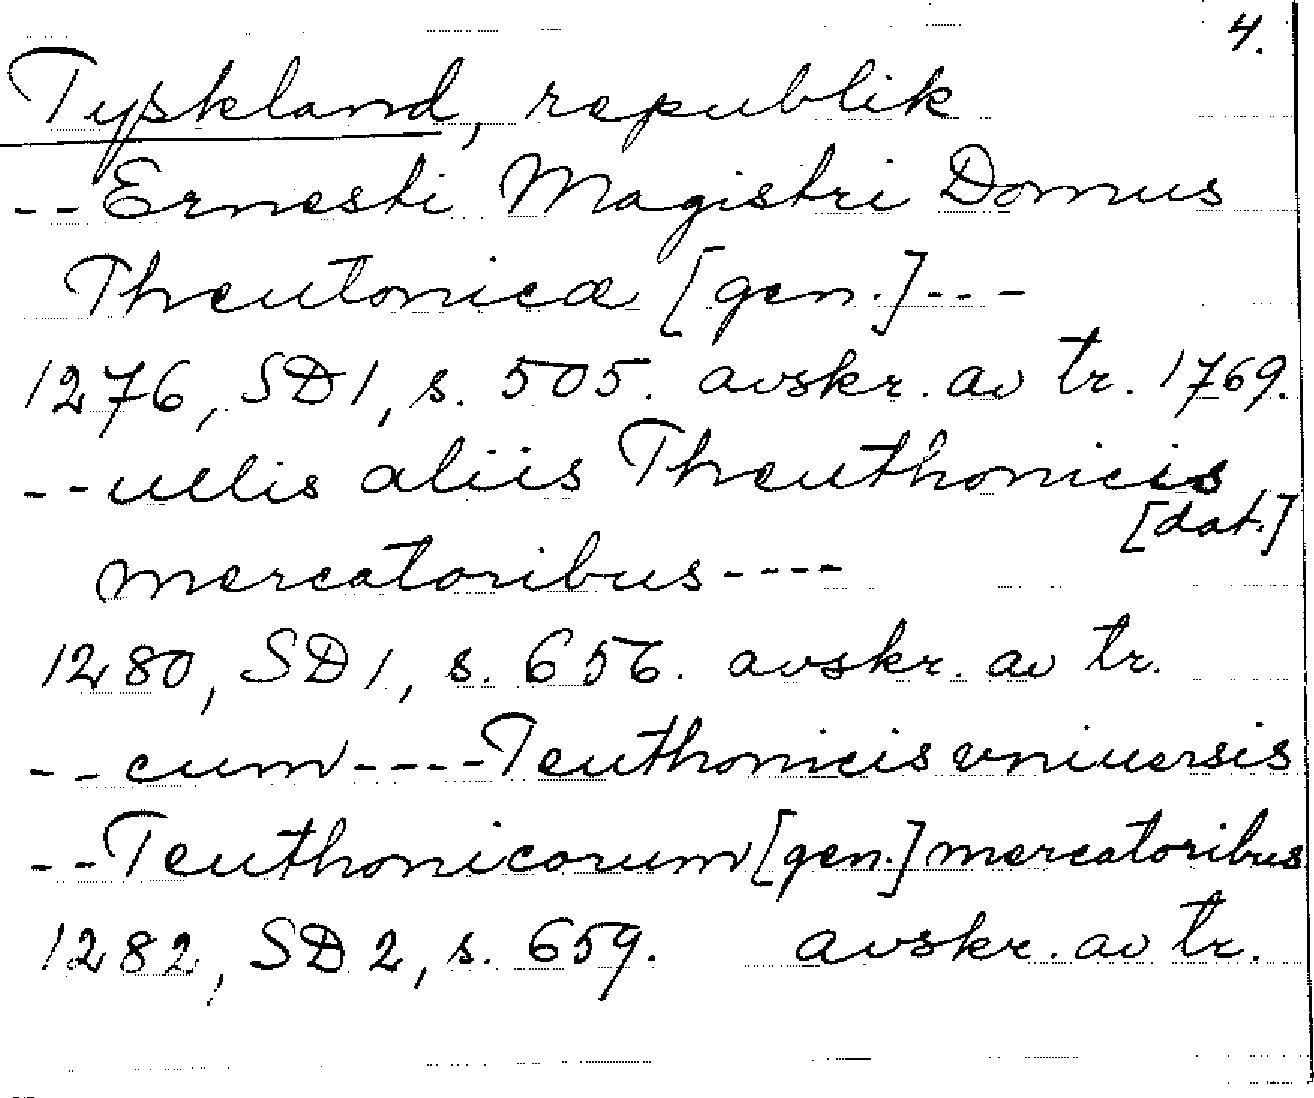 4.
Tyskland, republik
--Ernesti Magistri Domus
Theutonicæ [gen.]---
1276, SD1, s. 505. avskr. av tr. 1769.
--ullis aliis Theuthonicis
[dat.]
mercatoribus----
1280, SD1, s. 656. avskr. av tr.
--cum----Teuthonicis vniuersis
--Teuthonicorum [gen.] mercatoribus
1282, SD2, s. 659. avskr. av tr.